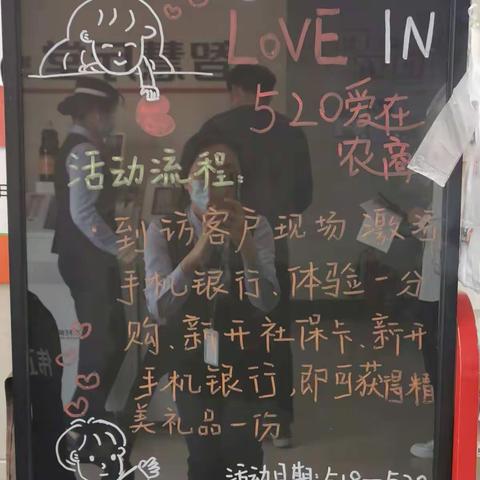 LOVE IN
520爱在
农商
活动流程:
到访客户现场激活
手机银行、体验一分
购、新开社保卡、新开
手机银行,即可获得精
美礼品一份
活动日期:518—520